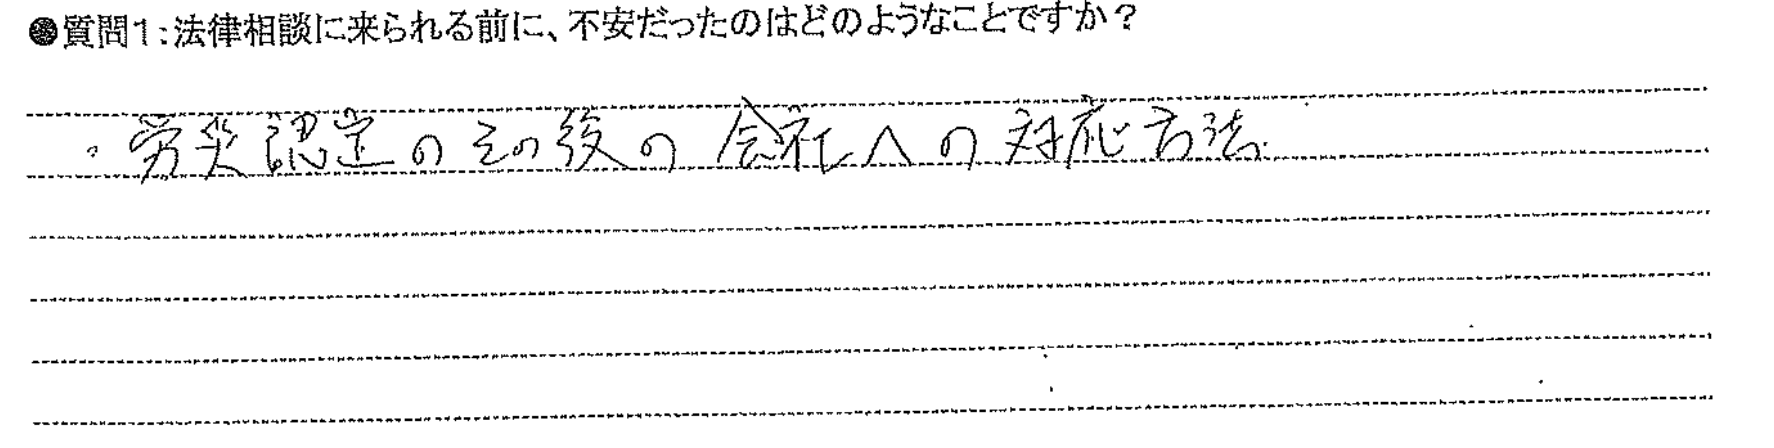 ●質問1:法律相談に来られる前に、不安だったのはどのようなことですか?
・労災認定のその後の会社への対応方法.